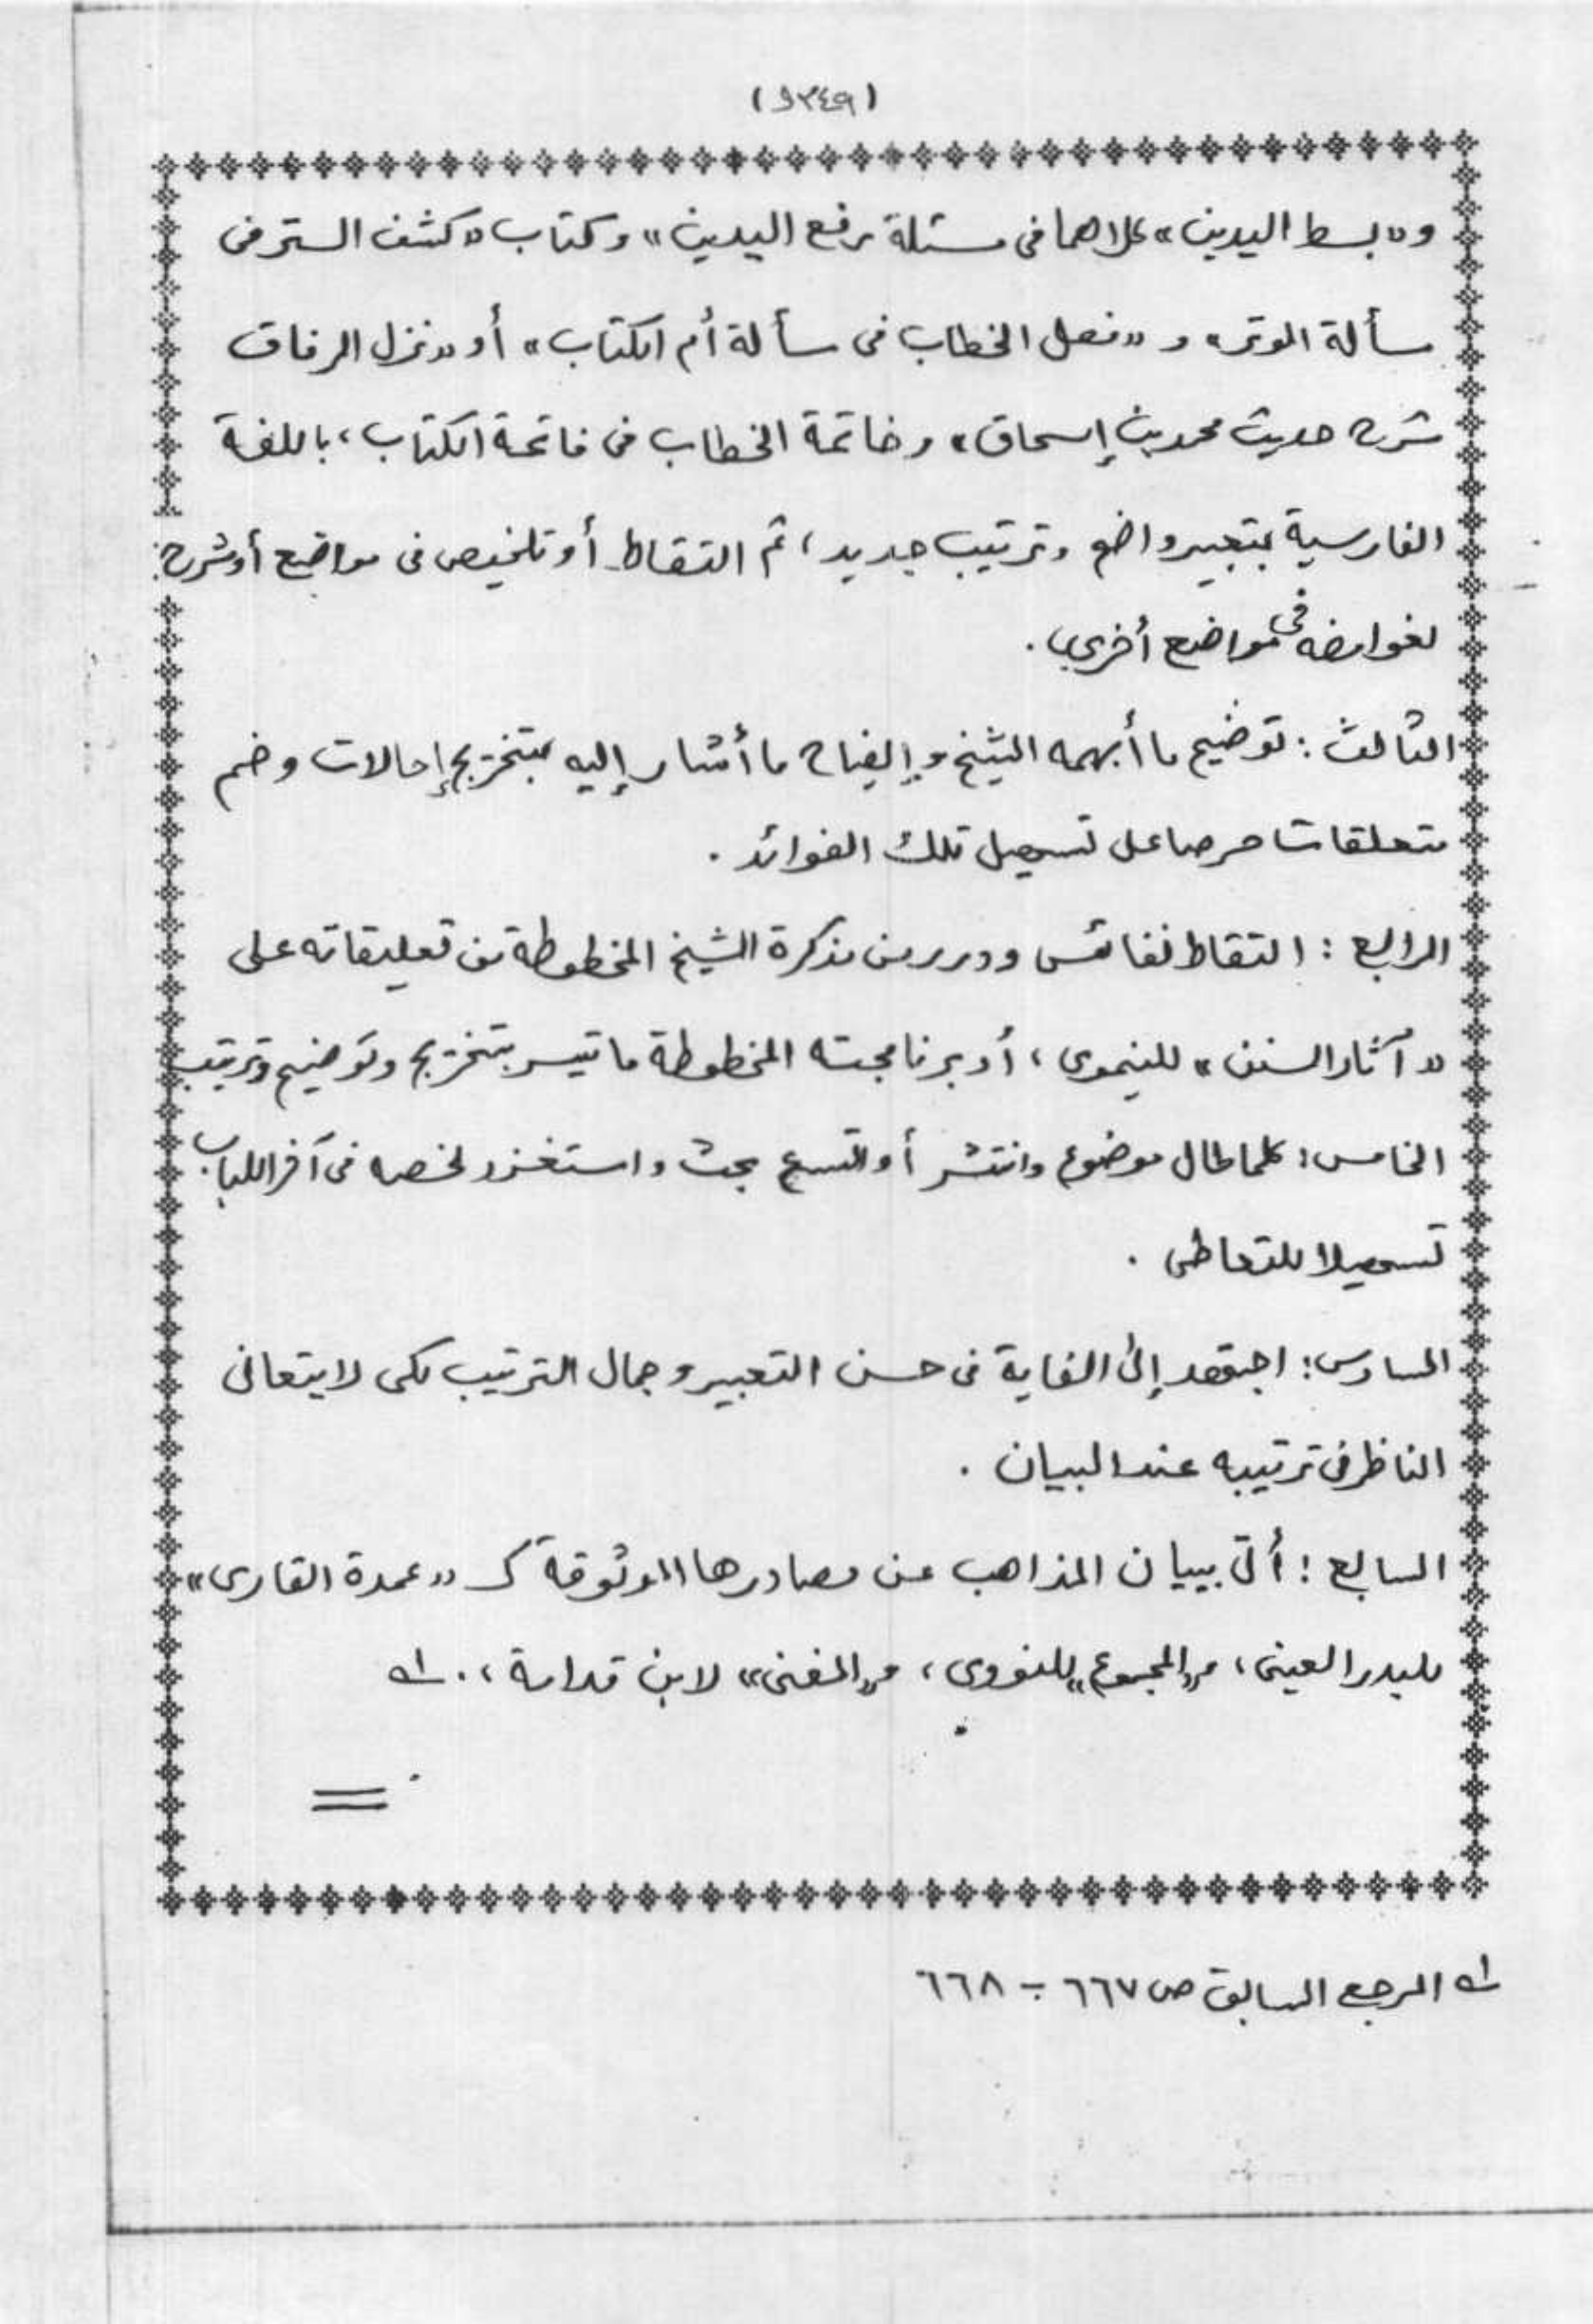 (١٣٤٩)
و«بسط اليدين» كلاهما فى مسئلة رفع اليدين» وكتاب «كشف الستر فى
سألة الوتر» و «فصل الخطاب فى سألة أم الكتاب» أو «نزل الرفاق
شرح حديث محمد بن إسحاق» وخاتمة الخطاب فى فاتحة الكتاب، باللغة
الفارسية بتعبير واضح وترتيب جديد، ثم التقاط أو تلخيص فى مواضع أوشرح
لغوامضه فى مواضع أخرى.
الثالث: توضيح ما أبهمه الشيخ وإيضاح ما أشار إليه بتخريج إحالات وضم
متعلقات حرصا على تسهيل تلك الفوائد.
الرابع: التقاط نفائس ودرر من مذكرة الشيخ المخطوطة من تعليقاته على
«آثار السنن» للنيموى، أو برنامجته المخطوطة ما تيسر بتخريج وتوضيح وترتيب
الخامس: كلما طال موضوع وانتشر أو اتسع بحث واستغزر لخصه فى آخر الباب
تسهيلا للتعاطى.
السادس: اجتهد إلى الغاية فى حسن التعبير وجمال الترتيب لكى لا يتعانى
الناظر فى ترتيبه عند البيان.
السابع: أتى ببيان المذاهب من مصادرها الموثوقة كـ «عمدة القارى»
للبدر العينى، و«المجموع» للنووى، و«المغنى» لابن قدامة،. ١ـه
١ـه المرجع السابق ص ٦٦٧ - ٦٦٨